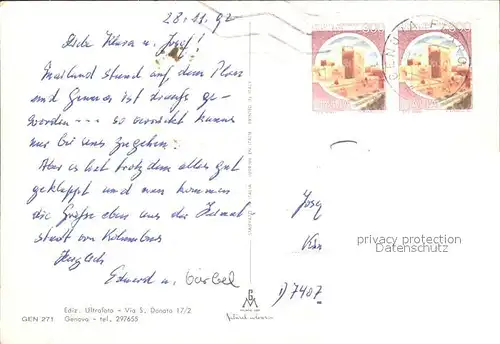 28.11.92
Liebe Klara u. Josef!
Mailand stand auf dem Plan
und Genua ist draufge-
worden --- so verrückt kanns
nur bei uns zugehen!
Aber es hat trotzdem alles gut
geklappt und nun kommen
die Grüße eben aus der Heimat
stadt von Kolumbus
Herzlich
Edward u. Bärbel
Josef
D 7407
privacy protection
Datenschutz
Ediz. Ultrafoto - Via S. Donato 17/2
GEN 271 Genova - tel. 297655